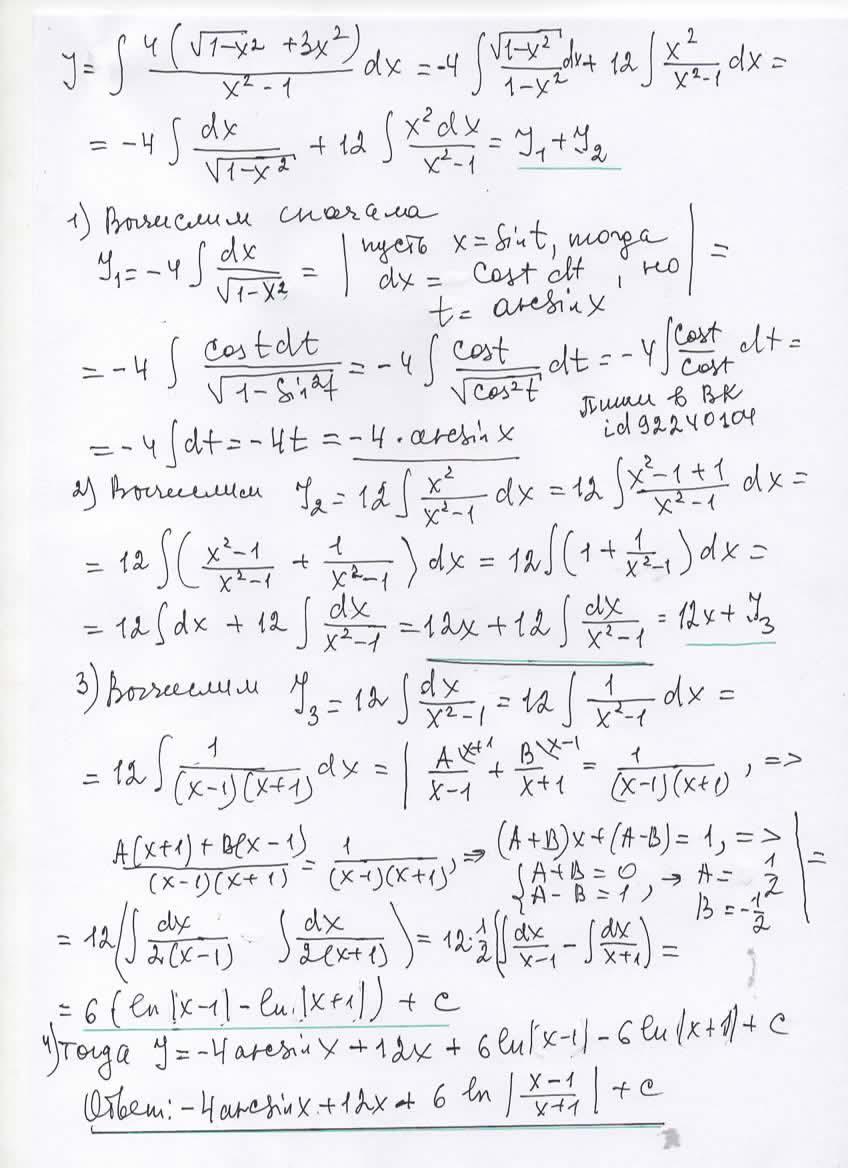 J = ∫ 4(√(1-x²) + 3x²)/(x²-1) dx = -4 ∫ √(1-x²)/(1-x²) dx + 12 ∫ x²/(x²-1) dx =
= -4 ∫ dx/√(1-x²) + 12 ∫ x²dx/(x²-1) = J₁ + J₂
1) Вычислим сначала
J₁ = -4 ∫ dx/√(1-x²) = | пусть x = sint, тогда dx = cost dt, но t = arcsinx | =
= -4 ∫ costdt/√(1-sin²t) = -4 ∫ cost/√(cos²t) dt = -4 ∫ cost/cost dt =
Пиши в ВК
id92240104
= -4 ∫ dt = -4t = -4 · arcsinx
2) Вычислим J₂ = 12 ∫ x²/(x²-1) dx = 12 ∫ (x²-1+1)/(x²-1) dx =
= 12 ∫ ((x²-1)/(x²-1) + 1/(x²-1)) dx = 12 ∫ (1 + 1/(x²-1)) dx =
= 12 ∫ dx + 12 ∫ dx/(x²-1) = 12x + 12 ∫ dx/(x²-1) = 12x + J₃
3) Вычислим J₃ = 12 ∫ dx/(x²-1) = 12 ∫ 1/(x²-1) dx =
= 12 ∫ 1/((x-1)(x+1)) dx = | A\x+1/(x-1) + B\x-1/(x+1) = 1/((x-1)(x+1)), =>
(A(x+1) + B(x-1))/((x-1)(x+1)) = 1/((x-1)(x+1)), => (A+B)x + (A-B) = 1, =>
{ A+B = 0
A-B = 1, → A = 1/2
B = -1/2 | =
= 12 (∫ dx/(2(x-1)) ∫ dx/(2(x+1))) = 12 · 1/2 (∫ dx/(x-1) - ∫ dx/(x+1)) =
= 6 (ln|x-1| - ln|x+1|) + c
4) Тогда J = -4arcsinx + 12x + 6ln|x-1| - 6ln|x+1| + c
Ответ: -4arcsinx + 12x + 6 ln |(x-1)/(x+1)| + c